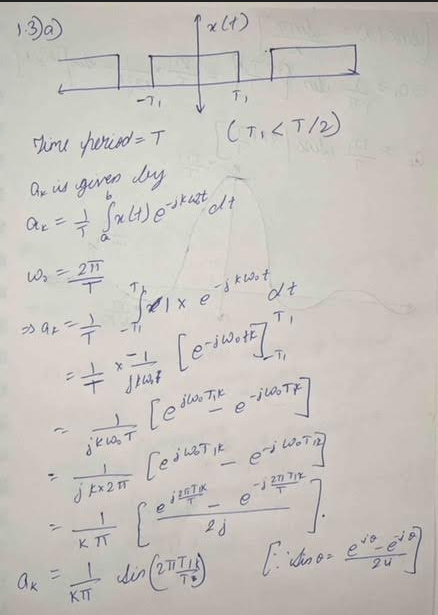 1.3)a)
x(t)
-T₁ T₁
Time period = T (T₁ < T/2)
aₖ is given by
aₖ = 1/T ∫ₐᵇ x(t) e^(-jkω₀t) dt
ω₀ = 2π/T
⇒ aₖ = 1/T ∫_(-T₁)^(T₁) 1 × e^(-jkω₀t) dt
= 1/T × -1/(jkω₀) [e^(-jω₀tk)]_(-T₁)^(T₁)
= 1/(jkω₀T) [e^(jω₀T₁k) - e^(-jω₀T₁k)]
= 1/(jk×2π) [e^(jω₀T₁k) - e^(-jω₀T₁k)]
= 1/(kπ) [(e^(j2πT₁k/T) - e^(-j2πT₁k/T))/2j].
aₖ = 1/(kπ) sin(2πT₁k/T) [∵ sinθ = (e^(jθ) - e^(-jθ))/2j]